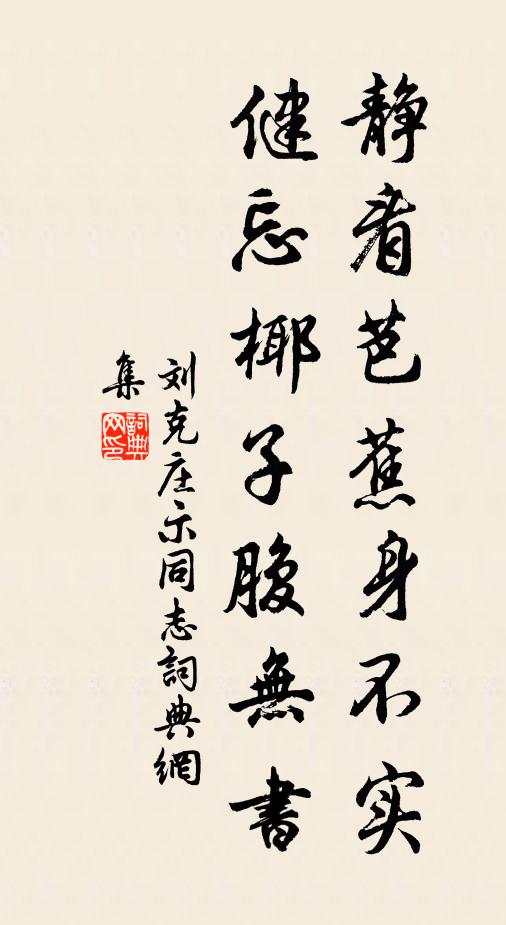 静看芭蕉身不实
健忘椰子腹無書
刘克庄示同志詞典網
集
詞典网印